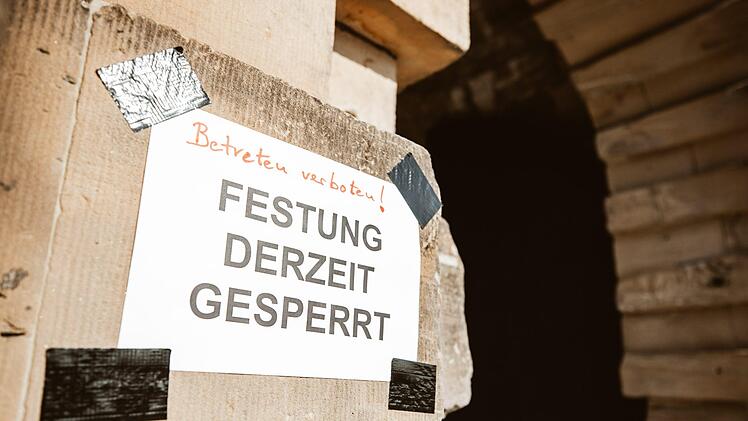 Betreten verboten!
FESTUNG
DERZEIT
GESPERRT